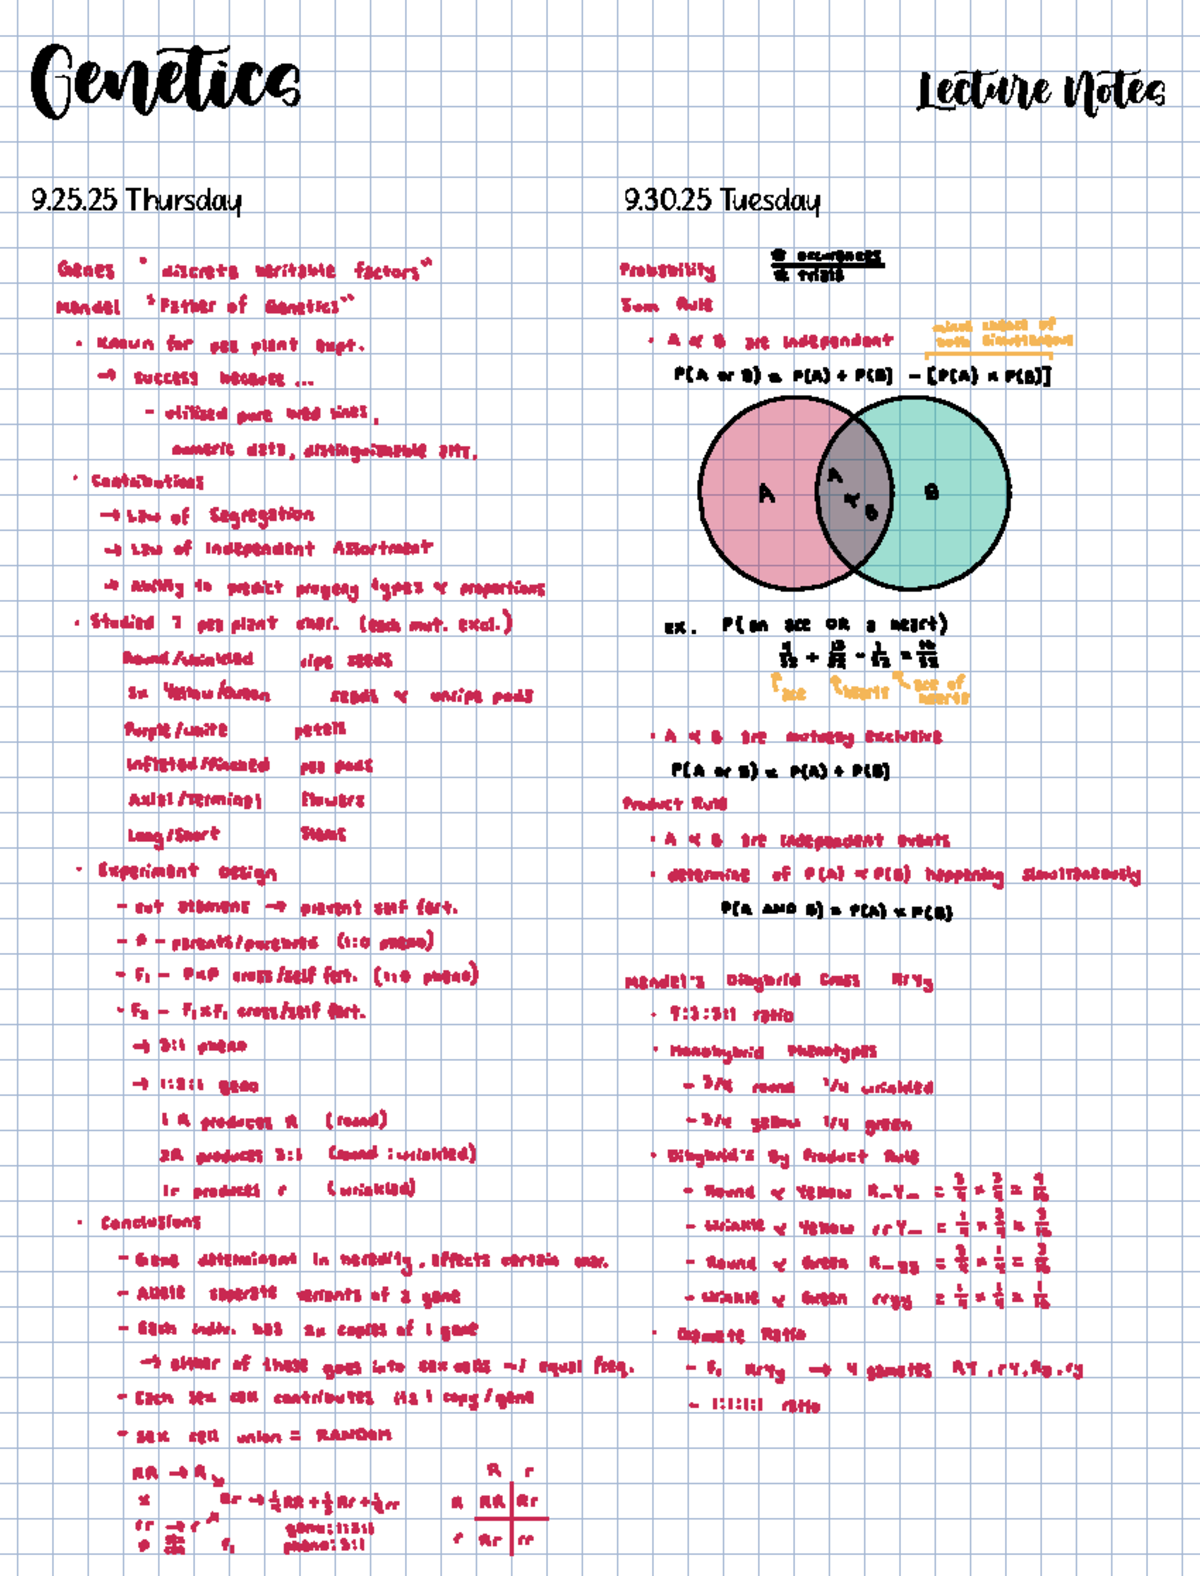 Genetics
Lecture Notes
9.25.25 Thursday
Genes " discrete heritable factors"
Mendel "Father of Genetics"
• Known for pea plant expt.
→ success because ...
- utilized pure bred lines,
numeric data, distinguishable
• Contributions
→ Law of Segregation
→ Law of Independent Assortment
→ Ability to predict progeny types & proportions
• Studied 7 pea plant char. (each mut. excl.)
Round/wrinkled ripe seeds
2x Yellow/Green seeds & unripe pods
Purple/white petals
Inflated/Pinched pea pods
Axial/Terminal flowers
Long/Short Stems
• Experiment Design
- cut stamens → prevent self fert.
- P - parents/purebred (1:0 pheno)
- F₁ - PxP cross/self fert. (1:0 pheno)
- F₂ - F₁xF₁ cross/self fert.
→ 3:1 pheno
→ 1:2:1 geno
1 R produces R (round)
2R produces 3:1 (round : wrinkled)
1r produces r (wrinkled)
• Conclusions
- Gene determinant in heredity, affects certain char.
- Allele seperate variants of a gene
- Each indiv. has 2x copies of 1 gene
→ either of these goes into sex cells w/ equal freq.
- Each sex cell contributes its 1 copy/gene
- sex cell union = RANDOM
RR → R
x Rr → ¼RR + ½Rr + ¼rr
rr → r geno: 1:2:1
P F₁ pheno: 3:1
R r
R RR Rr
r Rr rr
9.30.25 Tuesday
Probability # occurrences
# trials
Sum Rule
• A & B are independent
minus chance of
both simultaneous
P(A or B) = P(A) + P(B) - [P(A) x P(B)]
A A & B B
ex. P(an ace OR a heart)
4/52 + 13/52 - 1/52 = 16/52
ace hearts ace of hearts
• A & B are mutually exclusive
P(A or B) = P(A) + P(B)
Product Rule
• A & B are independent events
• determine of P(A) & P(B) happening simultaneously
P(A AND B) = P(A) x P(B)
Mendel's Dihybrid Cross RrYy
• 9:3:3:1 ratio
• Monohybrid Phenotypes
- 3/4 round 1/4 wrinkled
- 3/4 yellow 1/4 green
• Dihybrid's By Product Rule
- Round & Yellow R_Y_ = 3/4 x 3/4 = 9/16
- Wrinkle & Yellow rrY_ = 1/4 x 3/4 = 3/16
- Round & Green R_yy = 3/4 x 1/4 = 3/16
- Wrinkle & Green rryy = 1/4 x 1/4 = 1/16
• Gamete Ratio
- F₁ RrYy → 4 gametes RY, rY, Ry, ry
- 1:1:1:1 ratio